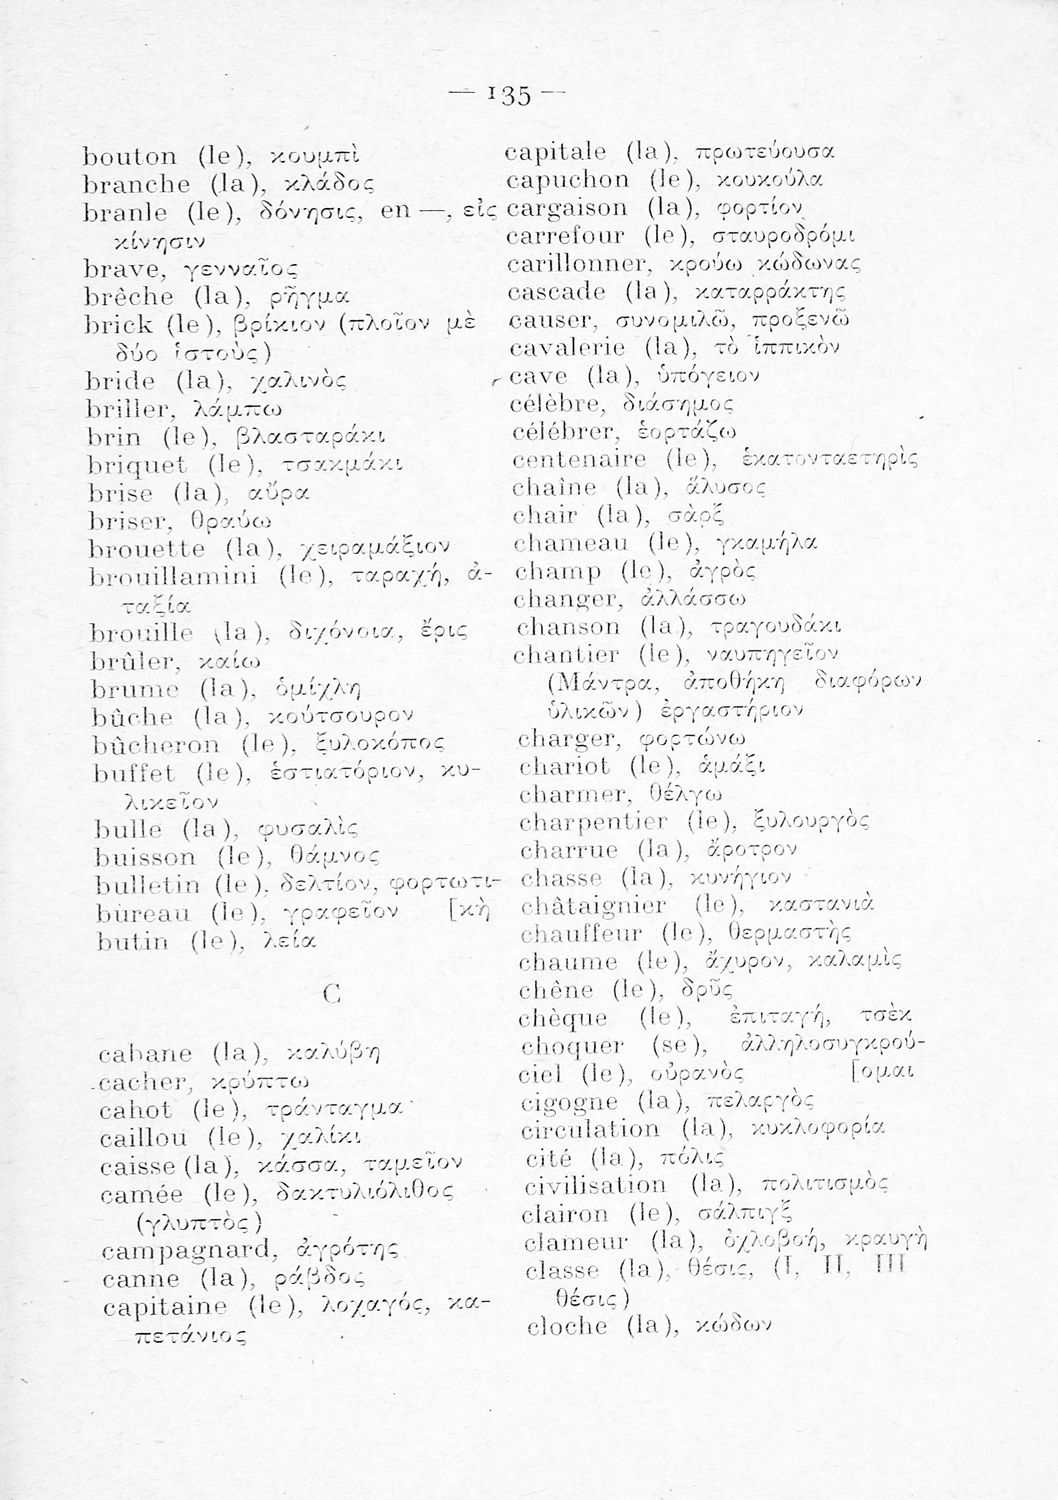 — 135 —
bouton (le), κουμπὶ
branche (la), κλάδος
branle (le), δόνησις, en —, εἰς
κίνησιν
brave, γενναῖος
brêche (la), ρῆγμα
brick (le), βρίκιον (πλοῖον μὲ
δύο ἱστοὺς)
bride (la), χαλινὸς
briller, λάμπω
brin (le), βλασταράκι
briquet (le), τσακμάκι
brise (la), αὔρα
briser, θραύω
brouette (la), χειραμάξιον
brouillamini (le), ταραχή, ἀ-
ταξία
brouille (la), διχόνοια, ἔρις
brûler, καίω
brume (la), ὁμίχλη
bûche (la), κούτσουρον
bûcheron (le), ξυλοκόπος
buffet (le), ἑστιατόριον, κυ-
λικεῖον
bulle (la), φυσαλὶς
buisson (le), θάμνος
bulletin (le), δελτίον, φορτωτι-
bureau (le), γραφεῖον [κὴ
butin (le), λεία
C
cabane (la), καλύβη
cacher, κρύπτω
cahot (le), τράνταγμα
caillou (le), χαλίκι
caisse (la), κάσσα, ταμεῖον
camée (le), δακτυλιόλιθος
(γλυπτὸς)
campagnard, ἀγρότης
canne (la), ράβδος
capitaine (le), λοχαγός, κα-
πετάνιος
capitale (la), πρωτεύουσα
capuchon (le), κουκούλα
cargaison (la), φορτίον
carrefour (le), σταυροδρόμι
carillonner, κρούω κώδωνας
cascade (la), καταρράκτης
causer, συνομιλῶ, προξενῶ
cavalerie (la), τὸ ἱππικὸν
cave (la), ὑπόγειον
célèbre, διάσημος
célébrer, ἑορτάζω
centenaire (le), ἑκατονταετηρὶς
chaîne (la), ἄλυσος
chair (la), σὰρξ
chameau (le), γκαμήλα
champ (le), ἀγρὸς
changer, ἀλλάσσω
chanson (la), τραγουδάκι
chantier (le), ναυπηγεῖον
(Μάντρα, ἀποθήκη διαφόρων
ὑλικῶν) ἐργαστήριον
charger, φορτώνω
chariot (le), ἁμάξι
charmer, θέλγω
charpentier (le), ξυλουργὸς
charrue (la), ἄροτρον
chasse (la), κυνήγιον
châtaignier (le), καστανιὰ
chauffeur (le), θερμαστὴς
chaume (le), ἄχυρον, καλαμὶς
chêne (le), δρῦς
chèque (le), ἐπιταγή, τσὲκ
choquer (se), ἀλληλοσυγκρού-
ciel (le), οὐρανὸς [ομαι
cigogne (la), πελαργὸς
circulation (la), κυκλοφορία
cité (la), πόλις
civilisation (la), πολιτισμὸς
clairon (le), σάλπιγξ
clameur (la), ὀχλοβοή, κραυγὴ
classe (la), θέσις, (I, II, III
θέσις)
cloche (la), κώδων